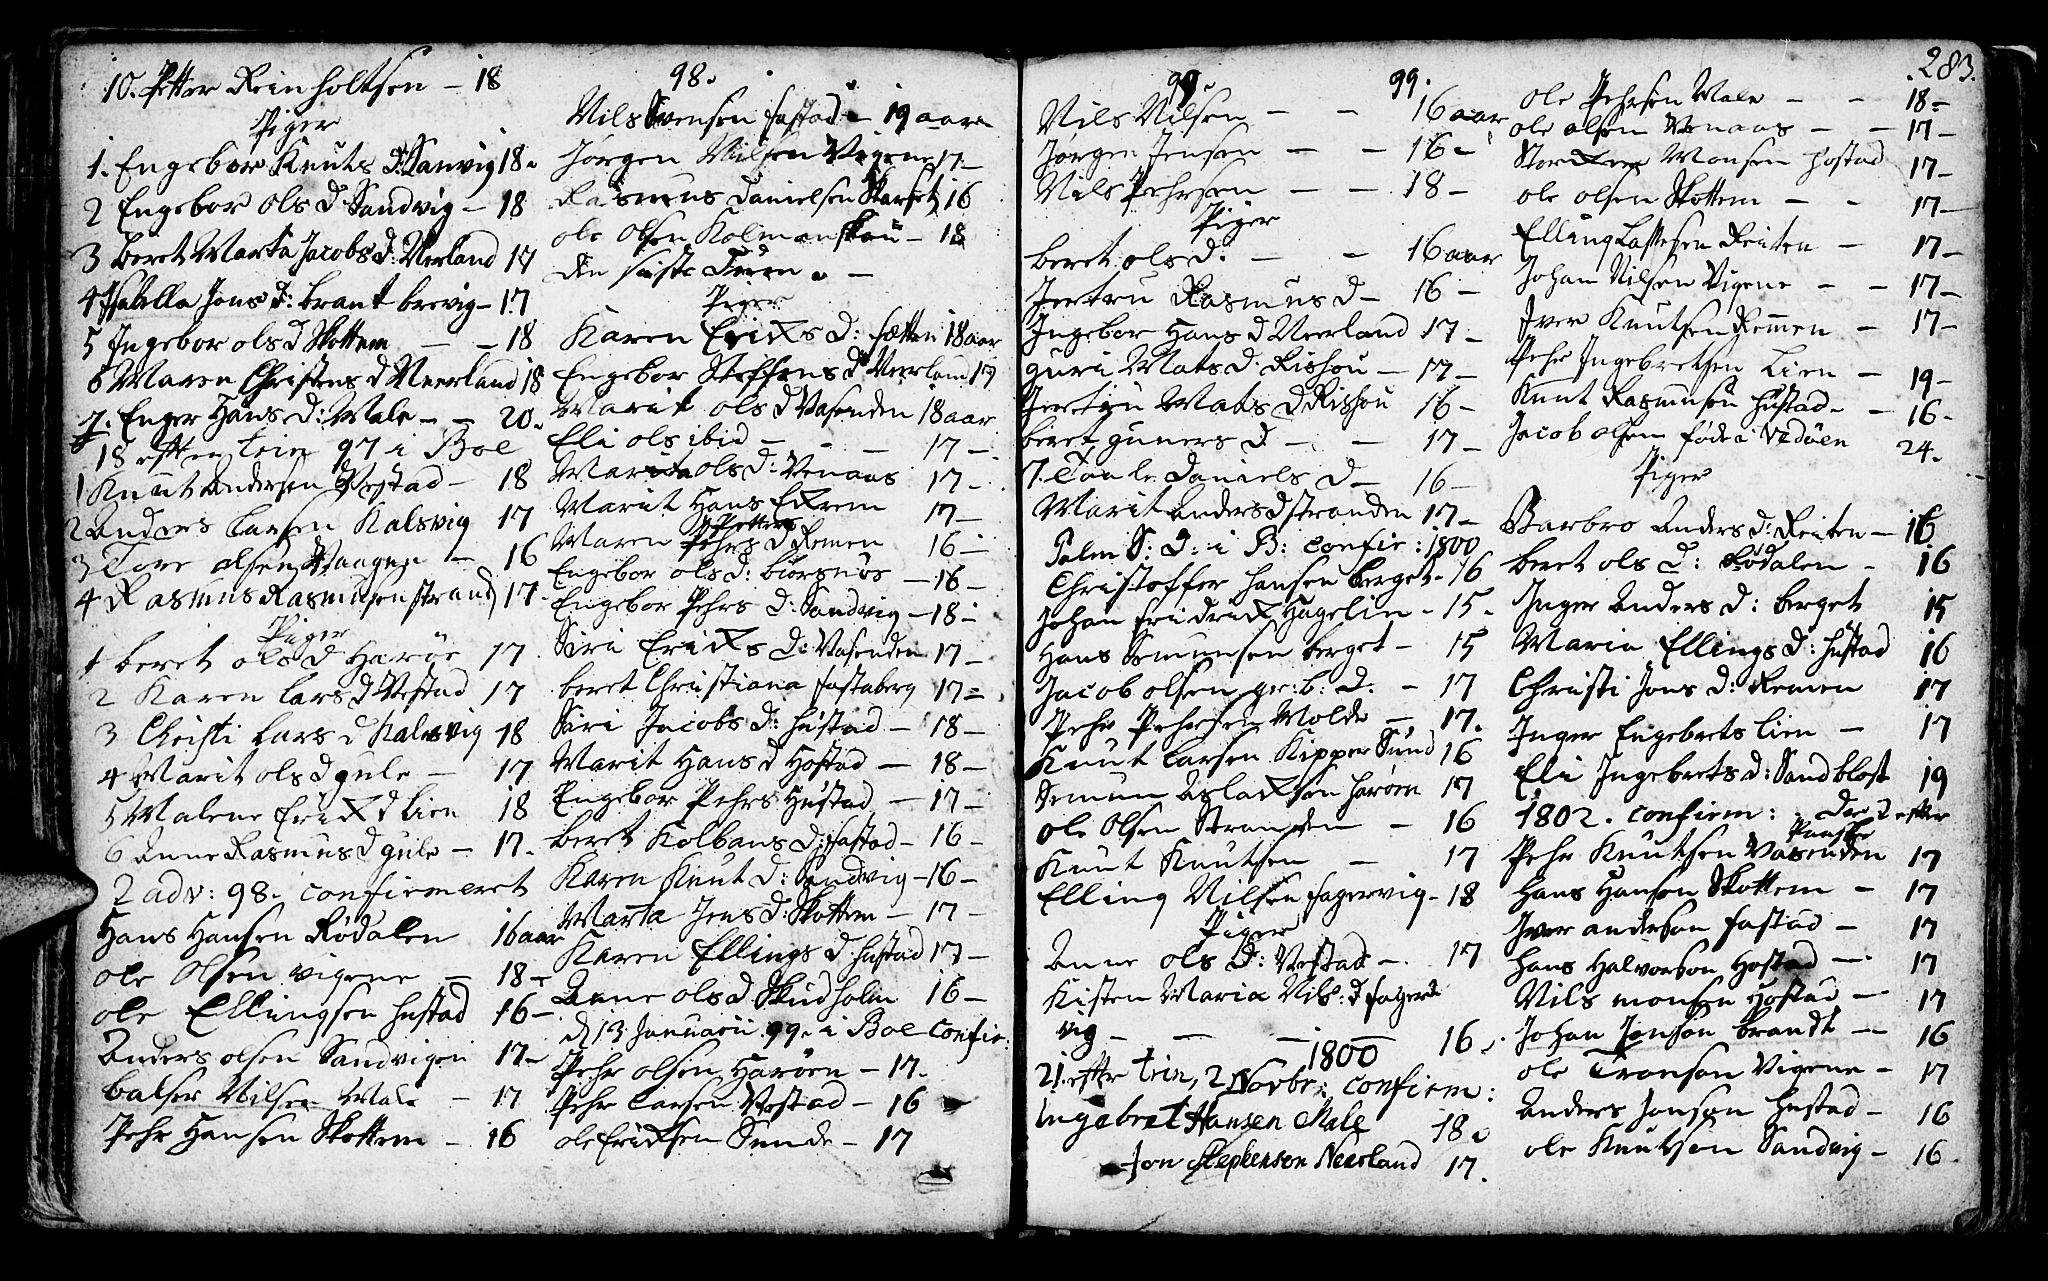 10. Petter Reinholtsen - 18
Piger
1. Engebor Knuts d: Sanvig 18.
2 Engebor Ols d. Sandvig - 18
3 beret Marta Jacobs d: Nerland 17
4 Isabella Jons d: brant brevig - 17
5 Ingebor ols d Skottem - - 18
6 Maren Christens d Neerland 18
7. Enger Hans d: Male - - 20.
18 efter trin 97 i Boe
1 Knut Andersen Vestad - 18
2 Anders Larsen Kalsvig 17
3 Tore olsen Vaagen - 16
4 Rasmus Rasmusen strand 17.
Piger
1 beret ols d Harøe 17
2 Karen Lars d Vestad 17
3 Christi Lars d Kalsvig 18
4 Marit ols d gule - 17
5 Malene Erix d Lien 18
6 Anne Rasmus d gule - 17.
2 adv: 98. confirmeret
Hans Hansen Rødalen 16 aar
ole Olsen vigene - 18 -
ole Ellingsen hustad 16 -
Anders olsen Sandvigen 17 -
balser Nilsen Male - 17
Pehr Hansen Skottem - 16
98.
Nils Svensen fastad - 19 aar
Jørgen Nilsen Vigene 17 -
Rasmus Danielsen Starset 16
ole Olsen Kolmanskou - 18
Piger
Karen Erixs d: sætten 18 aar
Engebor Steffens d Neerland 19
Marit ols d Vasenden 18 aar
Eli ols ibid - - - 17 -
Marita ols d: Venaas 17 -
Marit Hans Exrem 17 -
Petters
Maren Pehrs d Remen 16 -
Engebor ols d: biørsnøs - 16 -
Engebor Pehrs d: Sandvig - 18 -
Siri Erixs d: Vasenden 17 -
beret Christiana fastaberg 17 -
Siri Jacobs d: hustad - 18 -
Marit Hans d Hostad - 18 -
Engebor Pehrs Hustad - 17 -
beret Kolbans d: fastad - 16 -
Karen Knut d: Sandvig - 16 -
Marta Jens d: Skottem - 17 -
Karen Ellings d. hustad 17 -
Anne ols d Skudholm 16 -
d 13 Januarii 99. i Boe confir:
Pehr olsen Harøen - 17.
Pehr Larsen Vestad - 16
ole Erixsen Sunde - 17
99. 99.
Nils Nilsen - - 16 aar
Jørgen Jensen - - 16 -
Nils Pehrsen - - 18 -
Piger
beret ols d. - - 16 aar
Jertru Rasmus d - 16 -
Ingebor Hans d Neerland 17 -
guri Mats d. Rishou - 17 -
Mats d Rishou 16 -
beret guners d. - - 17 -
7. Daniels d - 16 -
Marit Anders d stranden 17 -
Palm S: D: i B: confir: 1800
Christoffer Hansen berget - 16
Johan fridrix Hagelin - 15 -
Hans Smunsen berget - 15
Jacob olsen gr: b: d. - 17
Pehr Pehrsen Molde - 17.
Knut Larsen Kipper Sund 16
Semun Aslaxsen harøen 17
ole Olsen Stranden - 16
Knut Knutsen - 17
Elling Nilsen fagervig - 18
Piger
Anne ols d: Vestad - 17
Kisten Maria Nils: d fager
vig - - - - 16.
1800
21 efter trin, 2 Novbr: confirm:
Ingebret Hansen Male 18.
Jon Stephenson Neerland 17.
283.
ole Pehrsen Male - - 18 -
ole olsen Venaas - - 17 -
Monsen hostad 17 -
ole olsen Skottem - - 17 -
Elling Lassesen Reiten - 17 -
Johan Nilsen Vigene - - 17 -
Iver Knutsen Remen - 17 -
Pehr Ingebretsen Lien - 19 -
Knut Rasmusen hustad - - 16 -
Jacob olsen føde i Vedøen 24.
Piger
Barbro Anders d: Reiten - 16
beret ols d: Rødalen - 16
Inger Anders d: berget 15
Maria Ellings d: hustad 16
Christi Jons d: Remen 17
Inger Engebrets lien - 17
Eli Ingebrets d: Sandblost 19
1802. confirm: den 2 efter
Paaske
Pehr Knutsen Vasenden 17
hans Hansen Skottem - 17
Iver anderson fastad - 17
hans Halvorson Hostad - 17
Nils monsen Hostad - 17
Johan Jonson brandt - 16
ole Tronson Vigene - 17
Anders Jonson hustad - 16
ole Knutson Sandvig - 16.